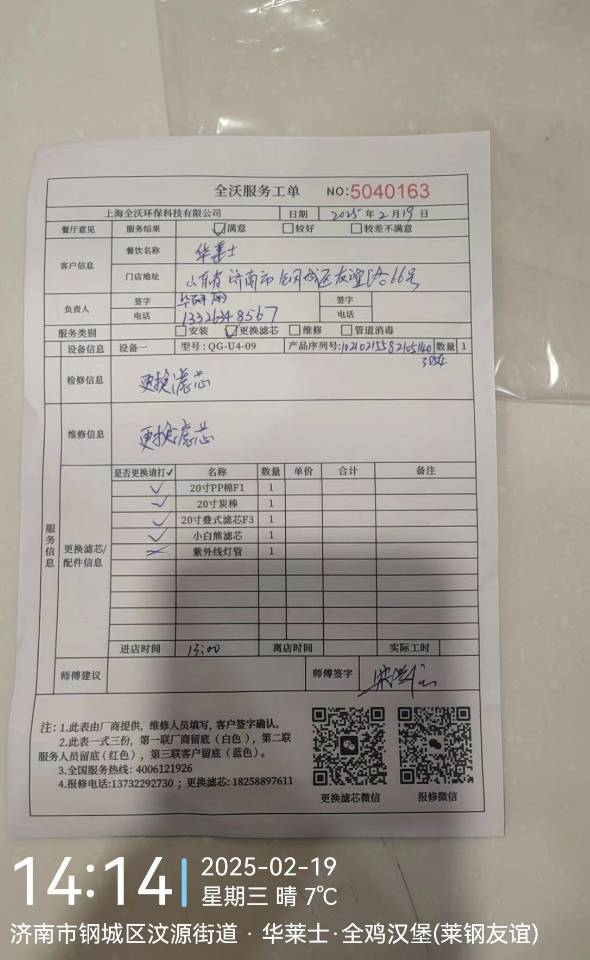 全沃服务工单 NO:5040163
上海全沃环保科技有限公司 日期 2025年2月19日
餐厅意见 服务结果 满意 较好 较差不满意
客户信息 餐饮名称 华莱士
门店地址 山东省济南市钢城区友谊路66号
负责人 签字 签字
电话 13326348567 电话
服务类别 安装 更换滤芯 维修 管道消毒
设备信息 设备一 型号:QG-U4-09 产品序列号: 数量 1
检修信息 更换滤芯
维修信息 更换滤芯
服务信息
更换滤芯/配件信息
是否更换请打✓ 名称 数量 单价 合计 备注
✓ 20寸PP棉F1 1
✓ 20寸炭棒 1
✓ 20寸叠式滤芯F3 1
✓ 小白熊滤芯 1
紫外线灯管 1
进店时间 13:00 离店时间 实际工时
师傅建议 师傅签字
注: 1.此表由厂商提供, 维修人员填写, 客户签字确认。
2.此表一式三份, 第一联厂商留底(白色), 第二联
服务人员留底(红色), 第三联客户留底(蓝色)。
3.全国服务热线: 4006121926
4.报修电话:13732292730 ; 更换滤芯: 18258897611
更换滤芯微信 报修微信
14:14 2025-02-19
星期三 晴 7℃
济南市钢城区汶源街道 · 华莱士·全鸡汉堡(莱钢友谊)